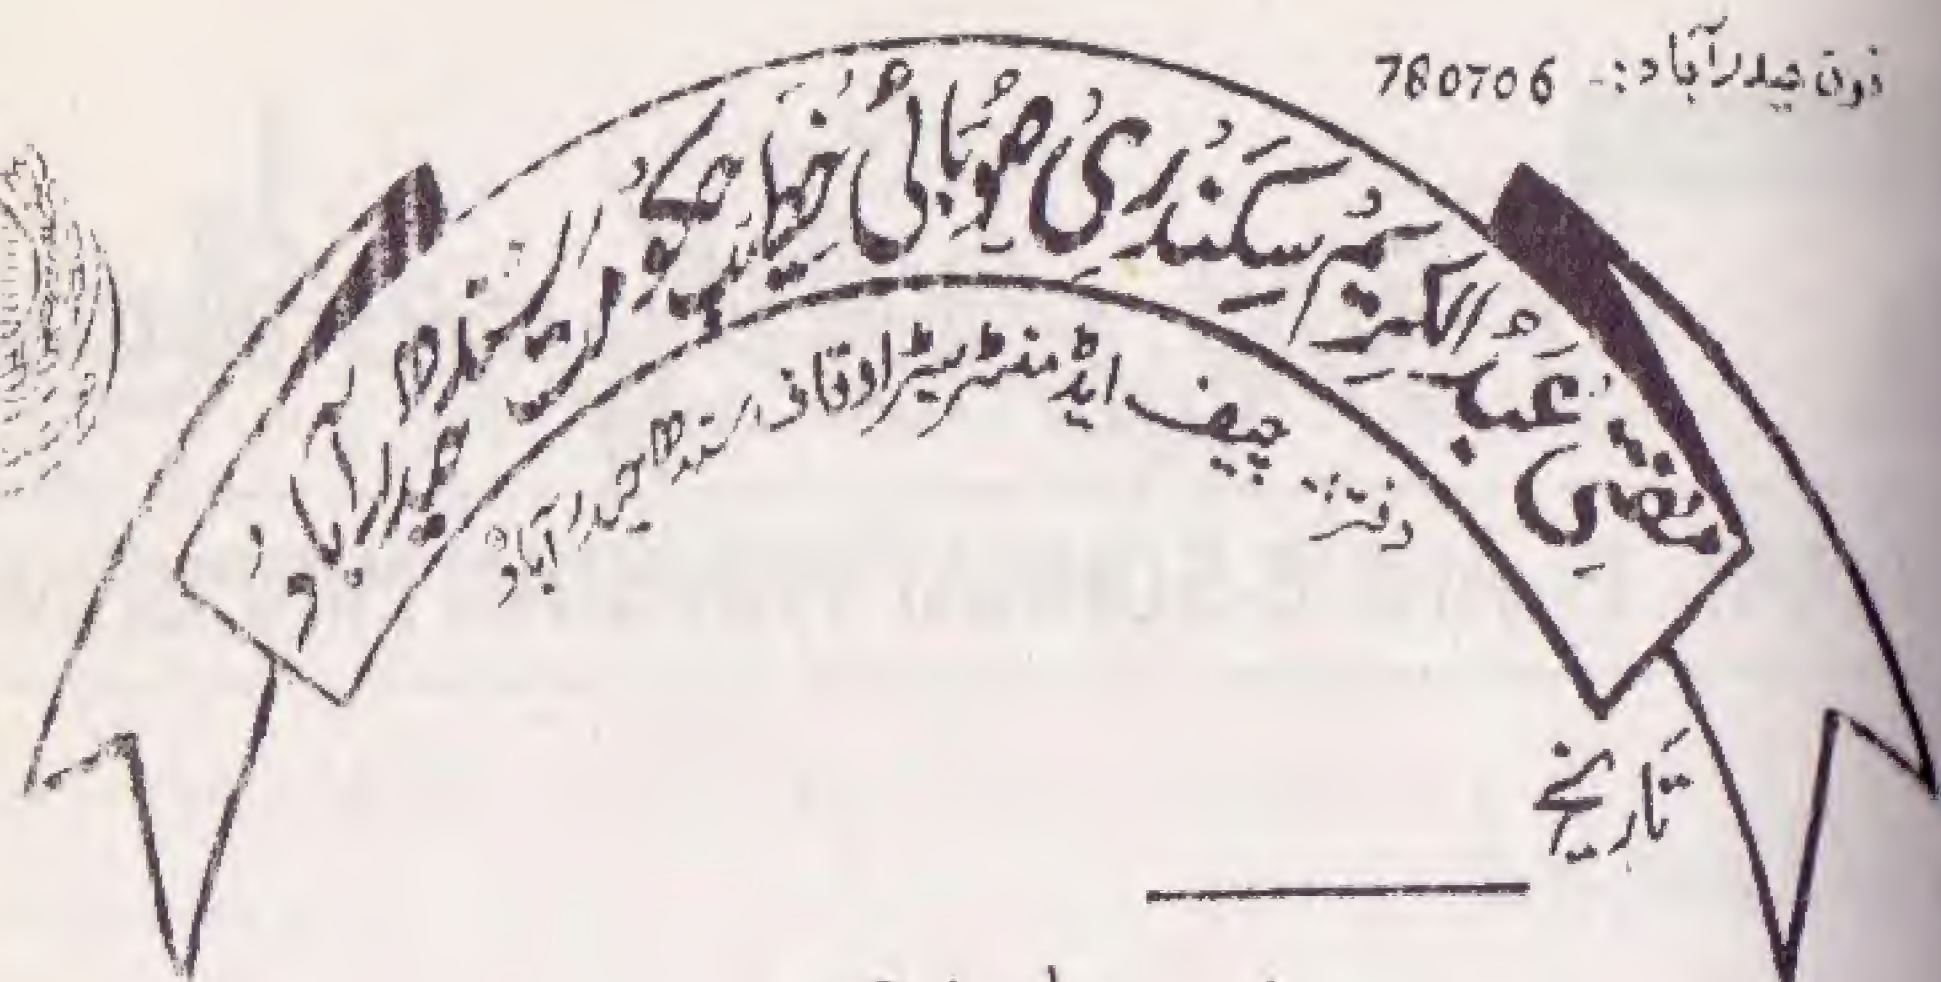 فون حیدرآباد:- 780706
مفتی عبدالکریم سکندری صوبائی خطیب حکومت سندھ حیدرآباد
دفتر:- چیف ایڈمنسٹریٹر اوقاف سندھ حیدرآباد
تاریخ